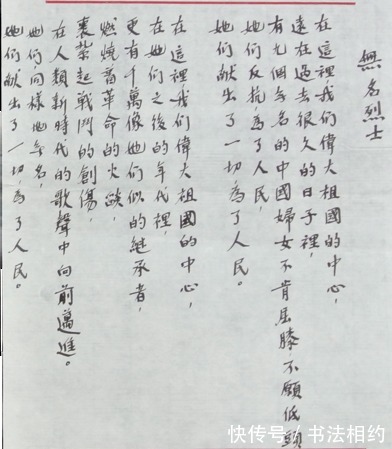 無名烈士
在這裡我们偉大祖國的中心，
遠在过去很久的日子裡，
有九個无名的中國婦女不肯屈膝不願低頭
她们反抗，为了人民，
她们献出了一切为了人民。
在這裡我们偉大祖國的中心，
在她们之後的年代裡，
更有千萬像她们似的继承者，
燃燒着革命的火燄，
裹紮起戰鬥的創傷，
在人類新時代的歌聲中向前邁進。
她们同樣地无名，
她们献出了一切为了人民。
快传号 / 书法相约